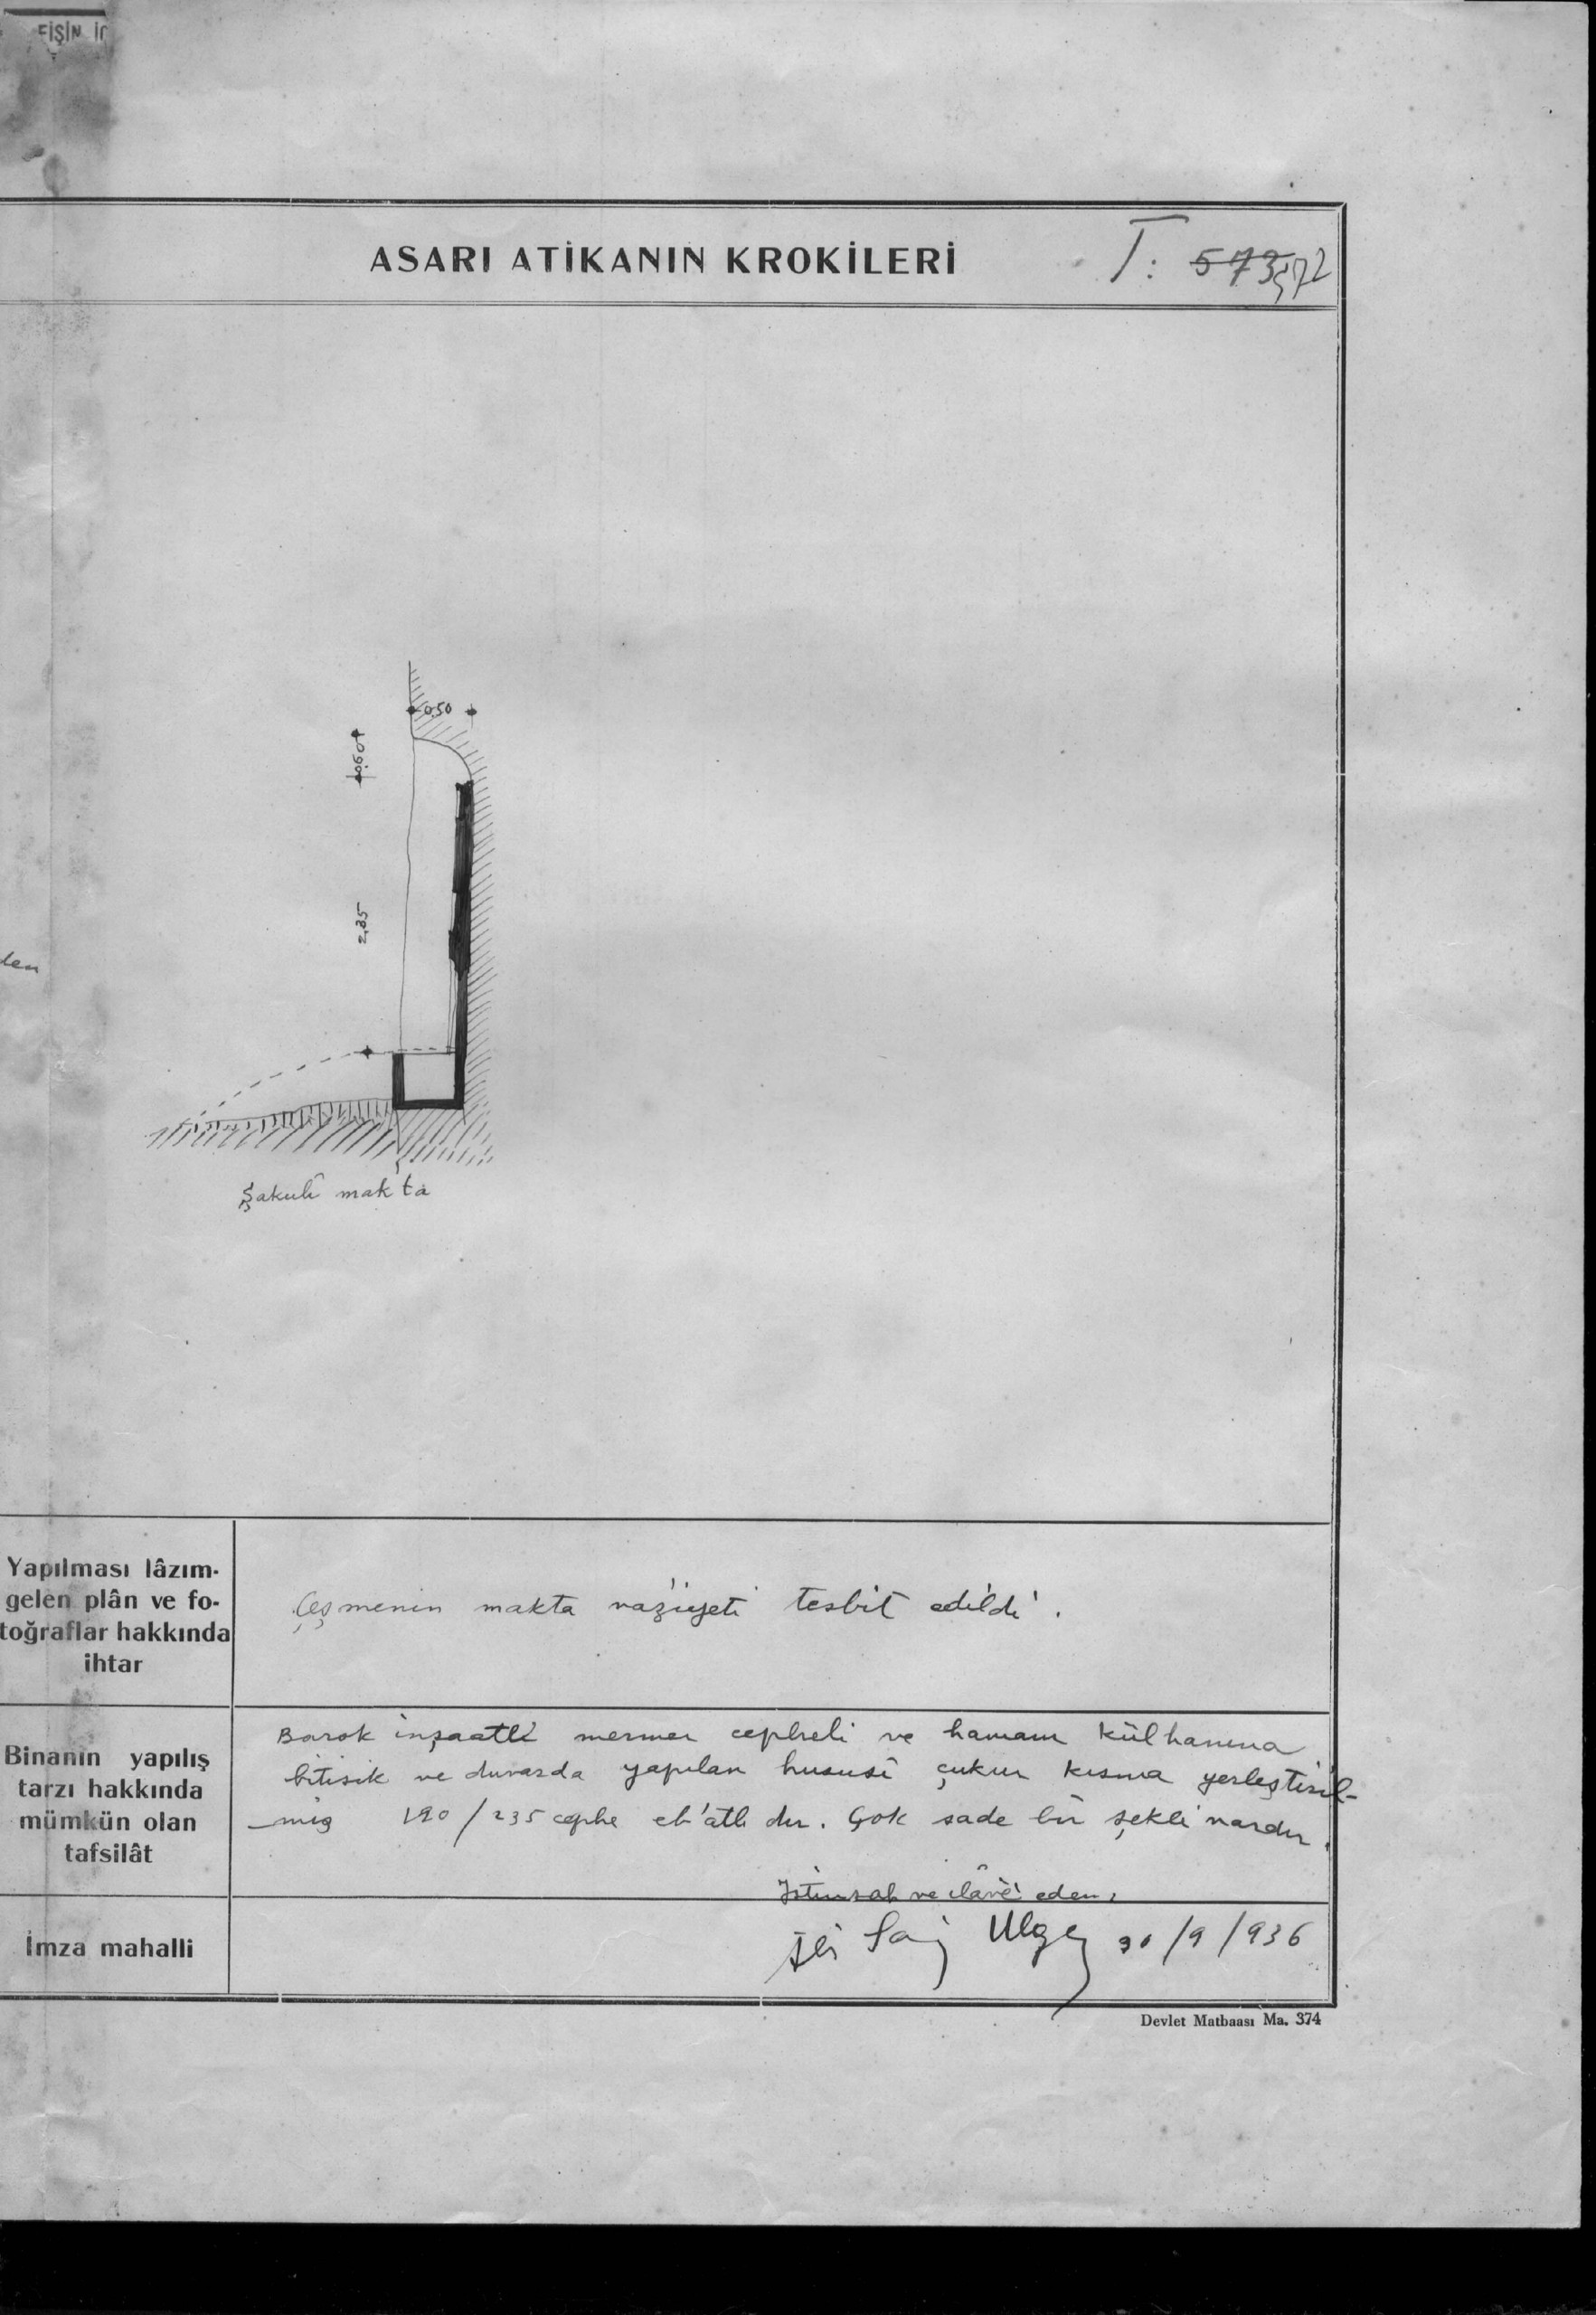 FİŞİN
ASARI ATİKANIN KROKİLERİ
T: 573 572
0.50
0.60
2,35
den
Şakulî makta
Yapılması lâzım-
gelen plân ve fo-
toğraflar hakkında
ihtar
Çeşmenin makta vaziyeti tesbit edildi.
Binanın yapılış
tarzı hakkında
mümkün olan
tafsilât
Barok inşaatlı mermer cepheli ve hamam külhanına
bitişik ve duvarda yapılan hususî çukur kısma yerleştiril-
miş 190/235 cephe eb'atlı dır. Çok sade bir şekli vardır.
İstinsah ve ilâve eden,
İmza mahalli
30/9/936
Devlet Matbaası Ma. 374